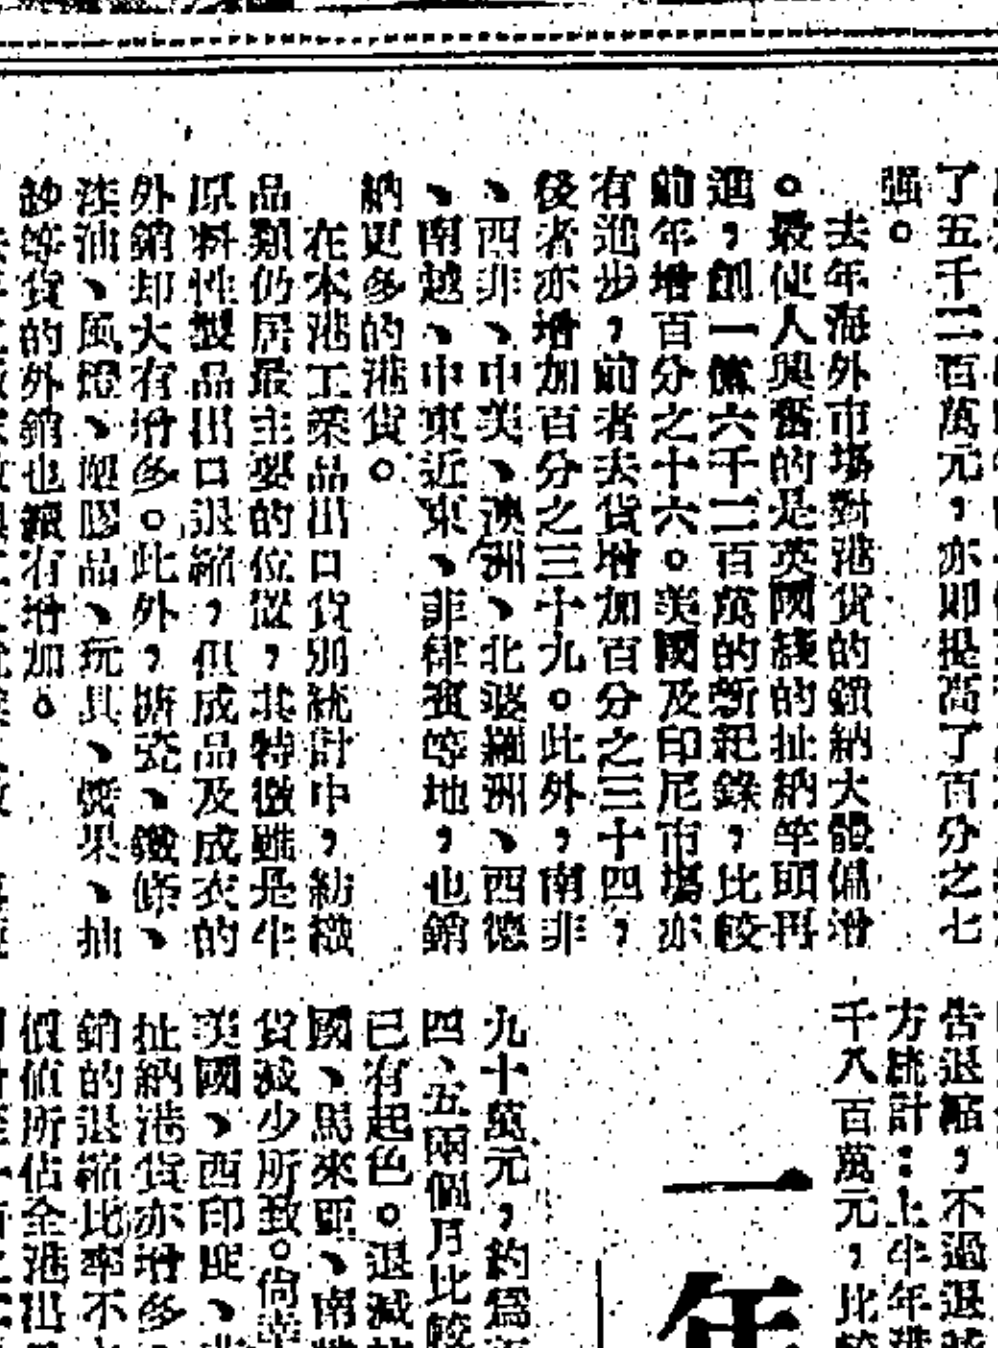 了五千二百萬元，亦即提高了百分之七
强。
去年海外市場對港貨的銷納大體偏增
。最使人興奮的是英國綫的扯納竿頭再
進，創一億六千二百萬的新紀錄，比較
前年增百分之十六。美國及印尼市場亦
有進步，前者去貨增加百分之三十四，
後者亦增加百分之三十九。此外，南非
、西非、中美、澳洲、北婆羅洲、西德
、南越、中東近東、菲律賓等地，也銷
納更多的港貨。
在本港工業品出口貨別統計中，紡織
品類仍居最主要的位置，其特徵雖是半
原料性製品出口退縮，但成品及成衣的
外銷却大有增多。此外，搪瓷、鐵條、
漆油、風燈、塑膠品、玩具、糖果、抽
紗等貨的外銷也續有增加。
告退縮，不過退
方統計：上半年港
千八百萬元，比較
一年
九十萬元，約爲
四、五兩個月比較
已有起色。退減
國、馬來亞、南
貨減少所致。尙
美國、西印度、
扯納港貨亦增多
銷的退縮比率不
價值所佔全港出